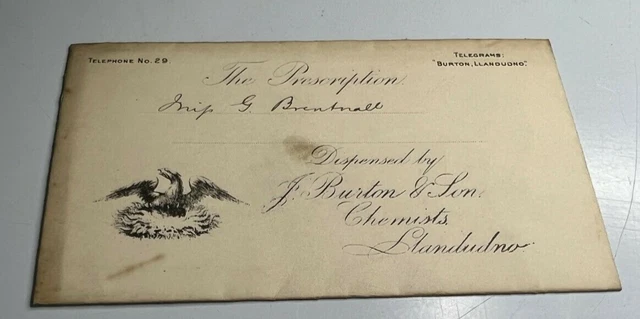 TELEPHONE NO. 29
TELEGRAMS:
"BURTON, LLANDUDNO."
The Prescription
Miss G. Brentnall
Dispensed by
J. Burton & Son.
Chemists,
Llandudno.